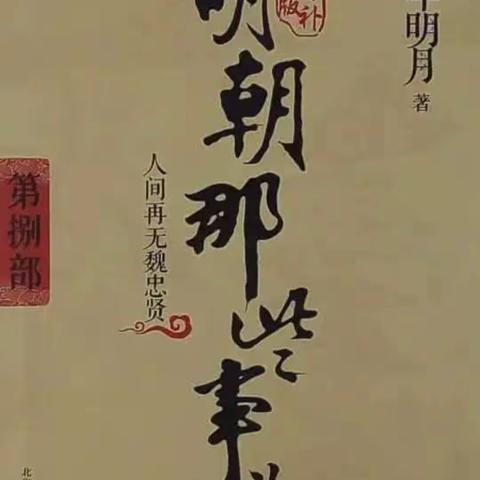 明朝那些事
补
版
明月 著
第捌部
人间再无魏忠贤
北